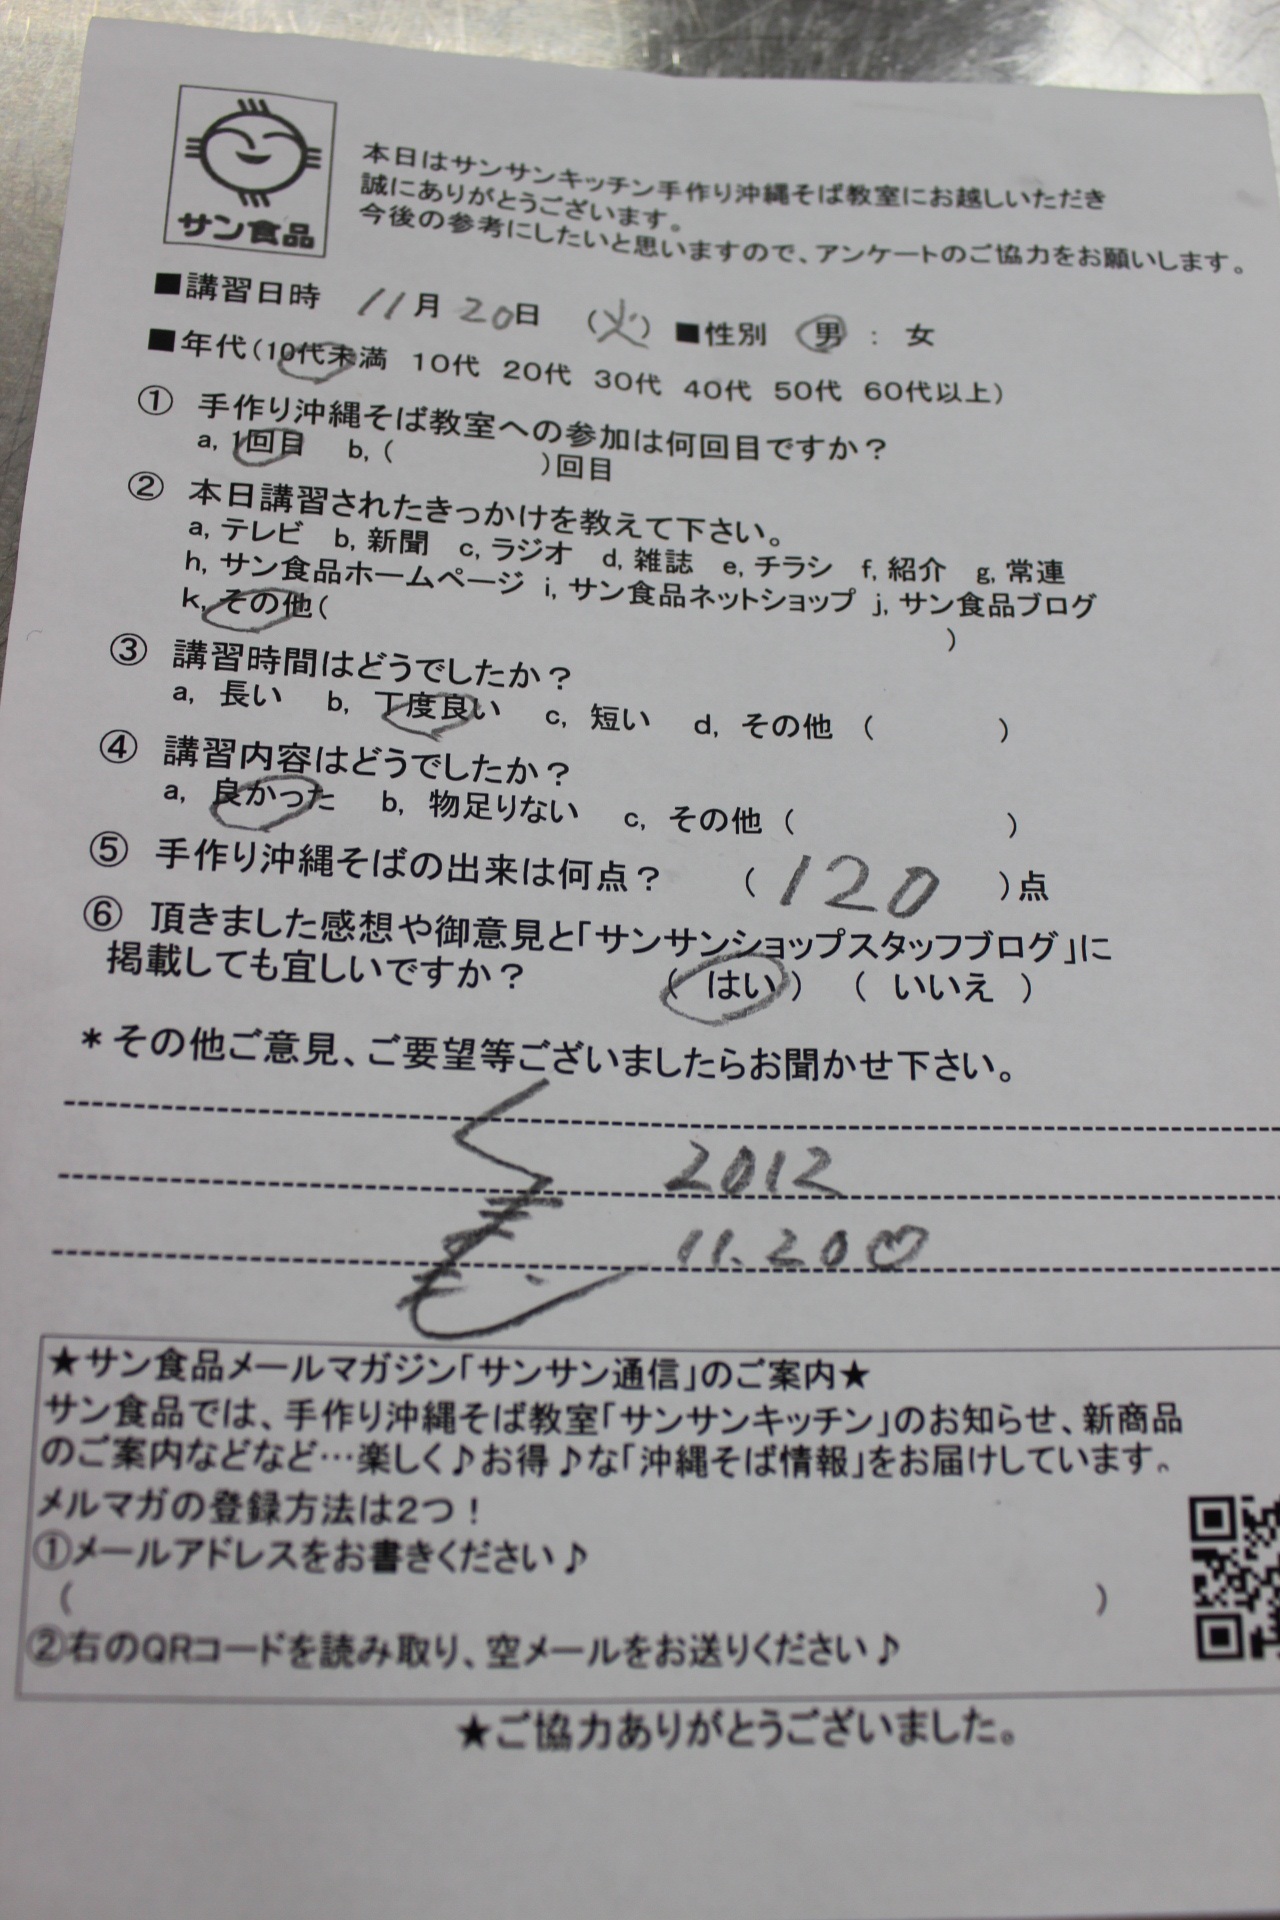 サン食品
本日はサンサンキッチン手作り沖縄そば教室にお越しいただき
誠にありがとうございます。
今後の参考にしたいと思いますので、アンケートのご協力をお願いします。
■講習日時 11月20日 (火) ■性別 男 : 女
■年代(10代未満 10代 20代 30代 40代 50代 60代以上)
① 手作り沖縄そば教室への参加は何回目ですか?
a, 1回目 b, ( )回目
② 本日講習されたきっかけを教えて下さい。
a, テレビ b, 新聞 c, ラジオ d, 雑誌 e, チラシ f, 紹介 g, 常連
h, サン食品ホームページ i, サン食品ネットショップ j, サン食品ブログ
k, その他( )
③ 講習時間はどうでしたか?
a, 長い b, 丁度良い c, 短い d, その他 ( )
④ 講習内容はどうでしたか?
a, 良かった b, 物足りない c, その他 ( )
⑤ 手作り沖縄そばの出来は何点? ( 120 )点
⑥ 頂きました感想や御意見と「サンサンショップスタッフブログ」に
掲載しても宜しいですか? ( はい ) ( いいえ )
*その他ご意見、ご要望等ございましたらお聞かせ下さい。
2012
11.20
★サン食品メールマガジン「サンサン通信」のご案内★
サン食品では、手作り沖縄そば教室「サンサンキッチン」のお知らせ、新商品
のご案内などなど…楽しく♪お得♪な「沖縄そば情報」をお届けしています。
メルマガの登録方法は2つ!
①メールアドレスをお書きください♪
( )
②右のQRコードを読み取り、空メールをお送りください♪
★ご協力ありがとうございました。